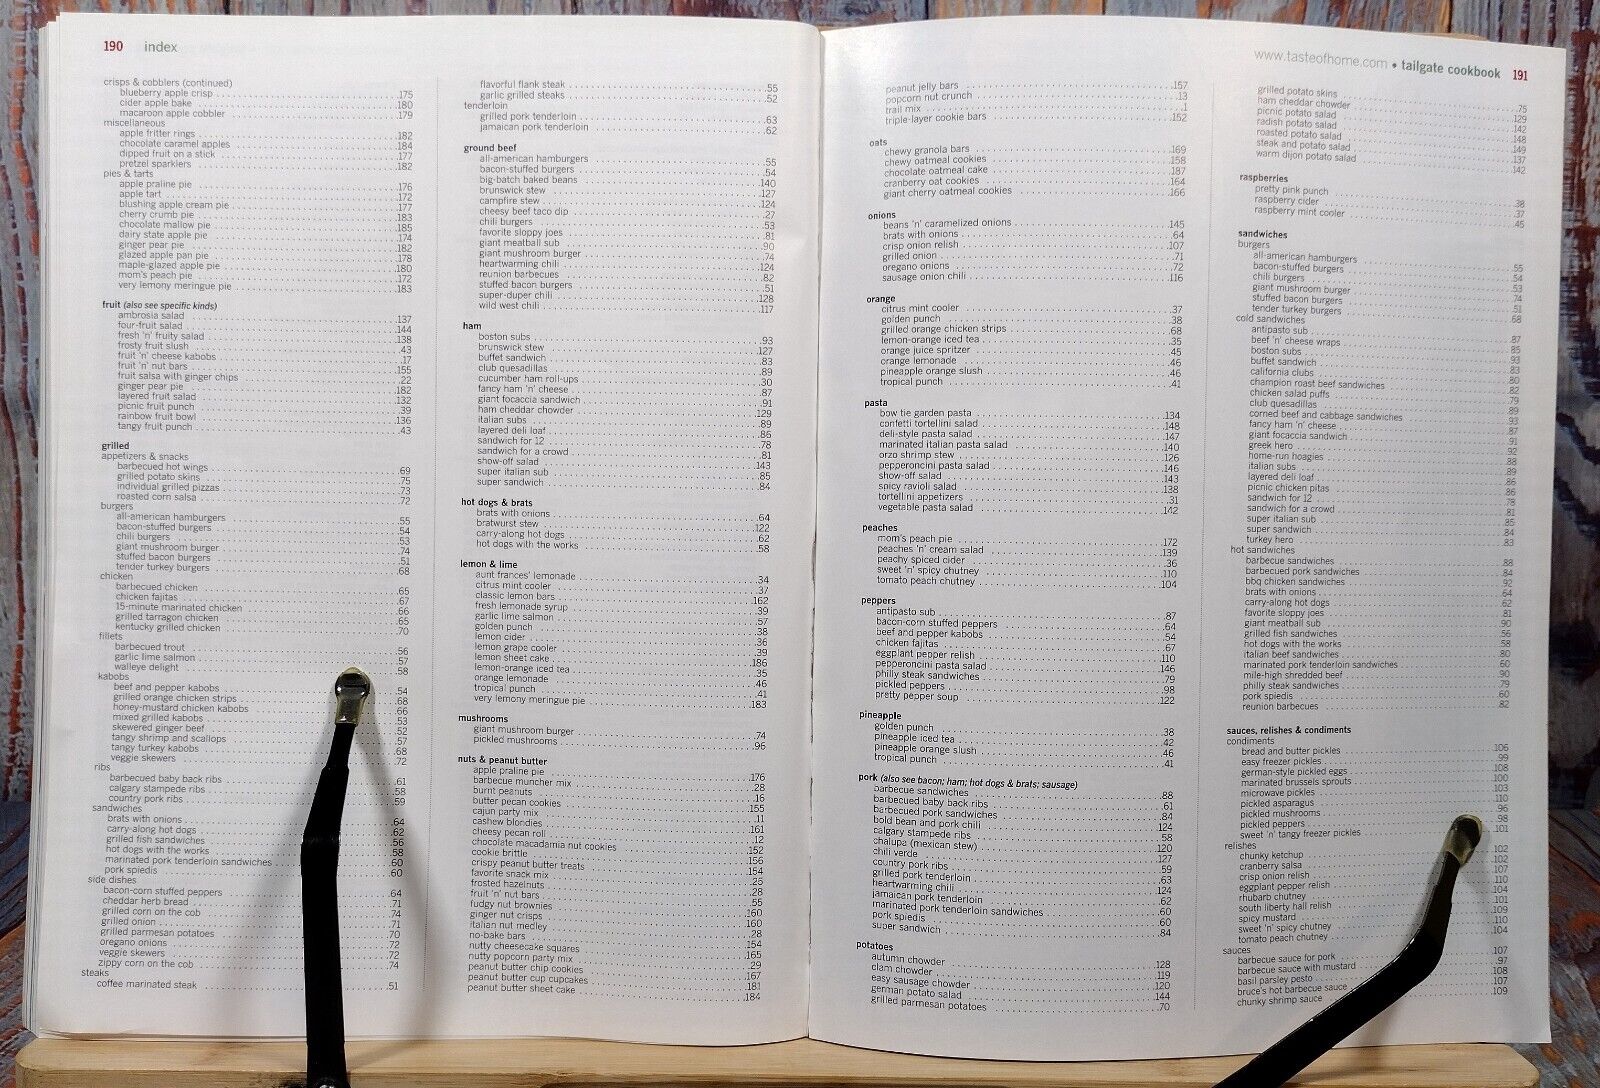 190 index
crisps & cobblers (continued)
blueberry apple crisp .175
cider apple bake .180
macaroon apple cobbler .179
miscellaneous
apple fritter rings .182
chocolate caramel apples .184
dipped fruit on a stick .177
pretzel sparklers .182
pies & tarts
apple praline pie .176
apple tart .172
blushing apple cream pie .177
cherry crumb pie .183
chocolate mallow pie .185
dairy state apple pie .174
ginger pear pie .182
glazed apple pan pie .178
maple-glazed apple pie .180
mom's peach pie .172
very lemony meringue pie .183
fruit (also see specific kinds)
ambrosia salad .137
four-fruit salad .144
fresh 'n' fruity salad .138
frosty fruit slush .43
fruit 'n' cheese kabobs .17
fruit 'n' nut bars .155
fruit salsa with ginger chips .22
ginger pear pie .182
layered fruit salad .132
picnic fruit punch .39
rainbow fruit bowl .136
tangy fruit punch .43
grilled
appetizers & snacks
barbecued hot wings .69
grilled potato skins .75
individual grilled pizzas .73
roasted corn salsa .72
burgers
all-american hamburgers .55
bacon-stuffed burgers .54
chili burgers .53
giant mushroom burger .74
stuffed bacon burgers .51
tender turkey burgers .68
chicken
barbecued chicken .65
chicken fajitas .67
15-minute marinated chicken .66
grilled tarragon chicken .65
kentucky grilled chicken .70
fillets
barbecued trout .56
garlic lime salmon .57
walleye delight .58
kabobs
beef and pepper kabobs .54
grilled orange chicken strips .68
honey-mustard chicken kabobs .66
mixed grilled kabobs .53
skewered ginger beef .52
tangy shrimp and scallops .57
tangy turkey kabobs .68
veggie skewers .72
ribs
barbecued baby back ribs .61
calgary stampede ribs .58
country pork ribs .59
sandwiches
brats with onions .64
carry-along hot dogs .62
grilled fish sandwiches .56
hot dogs with the works .58
marinated pork tenderloin sandwiches .60
pork spiedis .60
side dishes
bacon-corn stuffed peppers .64
cheddar herb bread .71
grilled corn on the cob .74
grilled onion .71
grilled parmesan potatoes .70
oregano onions .72
veggie skewers .72
zippy corn on the cob .74
steaks
coffee marinated steak .51
flavorful flank steak .55
garlic grilled steaks .52
tenderloin
grilled pork tenderloin .63
jamaican pork tenderloin .62
ground beef
all-american hamburgers .55
bacon-stuffed burgers .54
big-batch baked beans .140
brunswick stew .127
campfire stew .124
cheesy beef taco dip .27
chili burgers .53
favorite sloppy joes .81
giant meatball sub .90
giant mushroom burger .74
heartwarming chili .124
reunion barbecues .82
stuffed bacon burgers .51
super-duper chili .128
wild west chili .117
ham
boston subs .93
brunswick stew .127
buffet sandwich .83
club quesadillas .89
cucumber ham roll-ups .30
fancy ham 'n' cheese .87
giant focaccia sandwich .91
ham cheddar chowder .129
italian subs .89
layered deli loaf .86
sandwich for 12 .78
sandwich for a crowd .81
show-off salad .143
super italian sub .85
super sandwich .84
hot dogs & brats
brats with onions .64
bratwurst stew .122
carry-along hot dogs .62
hot dogs with the works .58
lemon & lime
aunt frances' lemonade .34
citrus mint cooler .37
classic lemon bars .162
fresh lemonade syrup .39
garlic lime salmon .57
golden punch .38
lemon cider .36
lemon grape cooler .39
lemon sheet cake .186
lemon-orange iced tea .35
orange lemonade .46
tropical punch .41
very lemony meringue pie .183
mushrooms
giant mushroom burger .74
pickled mushrooms .96
nuts & peanut butter
apple praline pie .176
barbecue muncher mix .28
burnt peanuts .16
butter pecan cookies .155
cajun party mix .11
cashew blondies .161
cheesy pecan roll .12
chocolate macadamia nut cookies .152
cookie brittle .156
crispy peanut butter treats .154
favorite snack mix .25
frosted hazelnuts .28
fruit 'n' nut bars .55
fudgy nut brownies .160
ginger nut crisps .160
italian nut medley .28
no-bake bars .154
nutty cheesecake squares .165
nutty popcorn party mix .29
peanut butter chip cookies .167
peanut butter cup cupcakes .181
peanut butter sheet cake .184
www.tasteofhome.com • tailgate cookbook 191
peanut jelly bars .157
popcorn nut crunch .13
trail mix .1
triple-layer cookie bars .152
oats
chewy granola bars .169
chewy oatmeal cookies .158
chocolate oatmeal cake .187
cranberry oat cookies .164
giant cherry oatmeal cookies .166
onions
beans 'n' caramelized onions .145
brats with onions .64
crisp onion relish .107
grilled onion .71
oregano onions .72
sausage onion chili .116
orange
citrus mint cooler .37
golden punch .38
grilled orange chicken strips .68
lemon-orange iced tea .35
orange juice spritzer .45
orange lemonade .46
pineapple orange slush .46
tropical punch .41
pasta
bow tie garden pasta .134
confetti tortellini salad .148
deli-style pasta salad .147
marinated italian pasta salad .140
orzo shrimp stew .126
pepperoncini pasta salad .146
show-off salad .143
spicy ravioli salad .138
tortellini appetizers .31
vegetable pasta salad .142
peaches
mom's peach pie .172
peaches 'n' cream salad .139
peachy spiced cider .36
sweet 'n' spicy chutney .110
tomato peach chutney .104
peppers
antipasto sub .87
bacon-corn stuffed peppers .64
beef and pepper kabobs .54
chicken fajitas .67
eggplant pepper relish .110
pepperoncini pasta salad .146
philly steak sandwiches .79
pickled peppers .98
pretty pepper soup .122
pineapple
golden punch .38
pineapple iced tea .42
pineapple orange slush .46
tropical punch .41
pork (also see bacon; ham; hot dogs & brats; sausage)
barbecue sandwiches .88
barbecued baby back ribs .61
barbecued pork sandwiches .84
bold bean and pork chili .124
calgary stampede ribs .58
chalupa (mexican stew) .120
chili verde .127
country pork ribs .59
grilled pork tenderloin .63
heartwarming chili .124
jamaican pork tenderloin .62
marinated pork tenderloin sandwiches .60
pork spiedis .60
super sandwich .84
potatoes
autumn chowder .128
clam chowder .119
easy sausage chowder .120
german potato salad .144
grilled parmesan potatoes .70
grilled potato skins .75
ham cheddar chowder .129
picnic potato salad .142
radish potato salad .148
roasted potato salad .149
steak and potato salad .137
warm dijon potato salad .142
raspberries
pretty pink punch .38
raspberry cider .37
raspberry mint cooler .45
sandwiches
burgers
all-american hamburgers .55
bacon-stuffed burgers .54
chili burgers .53
giant mushroom burger .74
stuffed bacon burgers .51
tender turkey burgers .68
cold sandwiches
antipasto sub .87
beef 'n' cheese wraps .85
boston subs .93
buffet sandwich .83
california clubs .80
champion roast beef sandwiches .82
chicken salad puffs .79
club quesadillas .89
corned beef and cabbage sandwiches .93
fancy ham 'n' cheese .87
giant focaccia sandwich .91
greek hero .92
home-run hoagies .88
italian subs .89
layered deli loaf .86
picnic chicken pitas .86
sandwich for 12 .78
sandwich for a crowd .81
super italian sub .85
super sandwich .84
turkey hero .83
hot sandwiches
barbecue sandwiches .88
barbecued pork sandwiches .84
bbq chicken sandwiches .92
brats with onions .64
carry-along hot dogs .62
favorite sloppy joes .81
giant meatball sub .90
grilled fish sandwiches .56
hot dogs with the works .58
italian beef sandwiches .80
marinated pork tenderloin sandwiches .60
mile-high shredded beef .90
philly steak sandwiches .79
pork spiedis .60
reunion barbecues .82
sauces, relishes & condiments
condiments
bread and butter pickles .106
easy freezer pickles .99
german-style pickled eggs .108
marinated brussels sprouts .100
microwave pickles .103
pickled asparagus .110
pickled mushrooms .96
pickled peppers .98
sweet 'n' tangy freezer pickles .101
relishes
chunky ketchup .102
cranberry salsa .102
crisp onion relish .107
eggplant pepper relish .110
rhubarb chutney .104
south liberty hall relish .101
spicy mustard .109
sweet 'n' spicy chutney .110
tomato peach chutney .104
sauces
barbecue sauce for pork .107
barbecue sauce with mustard .97
basil parsley pesto .108
bruce's hot barbecue sauce .107
chunky shrimp sauce .109